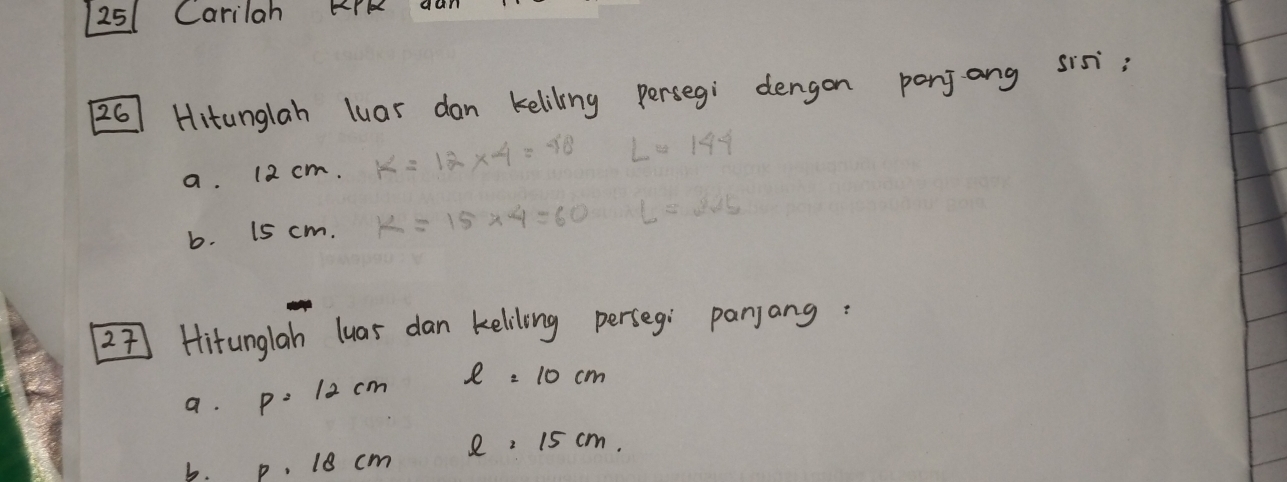 25 Carilah KPK dan
26 Hitunglah luas dan keliling persegi dengan panjang sisi :
a. 12 cm. K = 12 x 4 = 48 L = 144
b. 15 cm. K = 15 x 4 = 60 L = 225
27 Hitunglah luas dan keliling persegi panjang :
a. p = 12 cm l = 10 cm
b. p = 18 cm l = 15 cm.